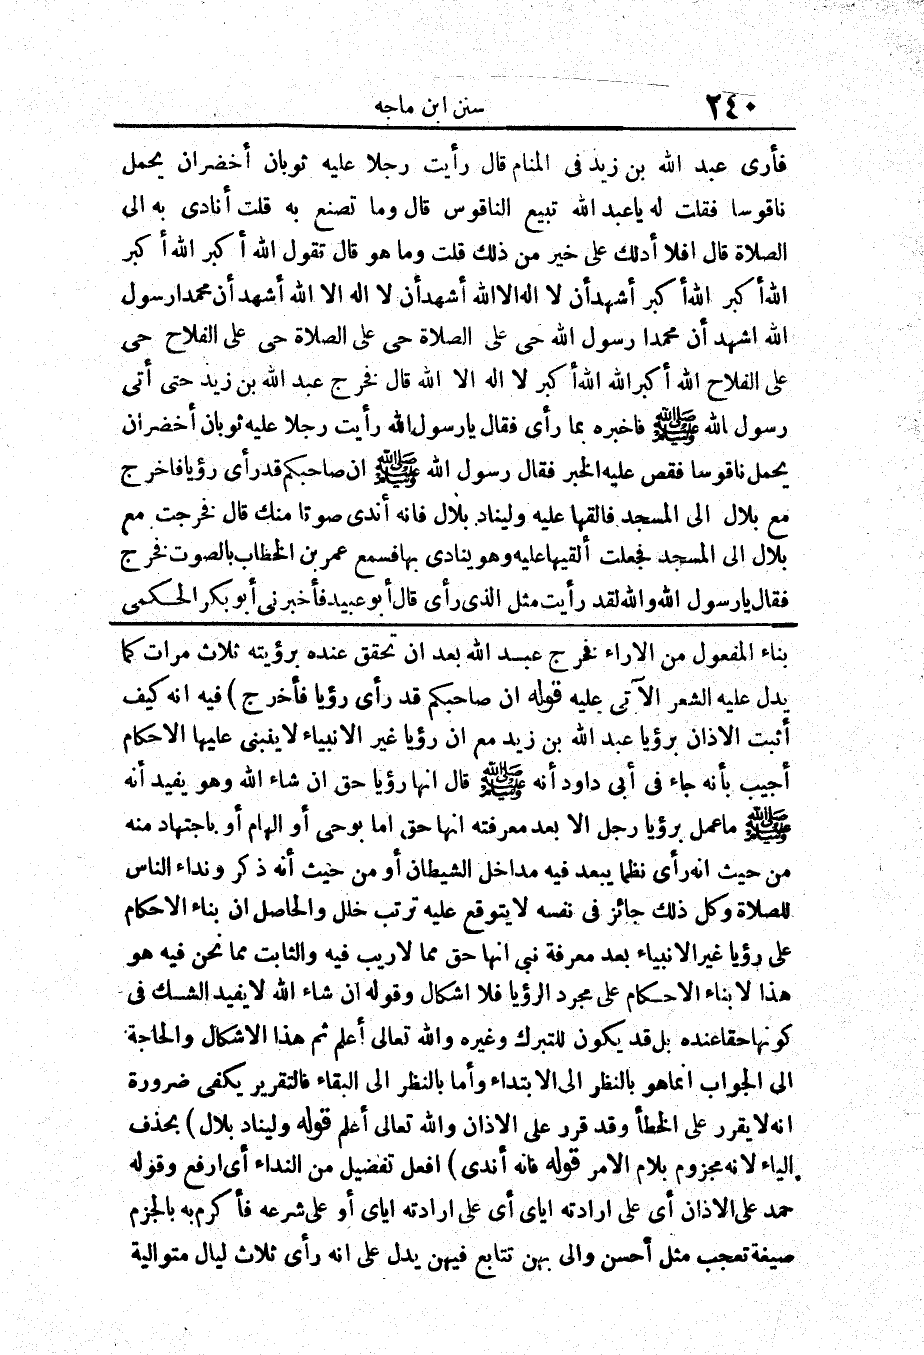 ٢٤٠ سنن ابن ماجه
فأرى عبد الله بن زيد فى المنام قال رأيت رجلا عليه ثوبان أخضران يحمل
ناقوسا فقلت له ياعبد الله تبيع الناقوس قال وما تصنع به قلت أنادى به الى
الصلاة قال افلا أدلك على خير من ذلك قلت وما هو قال تقول الله أكبر الله أكبر
الله أكبر الله أكبر أشهد أن لا اله الا الله أشهد أن لا اله الا الله أشهد أن محمدا رسول
الله اشهد أن محمدا رسول الله حى على الصلاة حى على الصلاة حى على الفلاح حى
على الفلاح الله أكبر الله الله أكبر لا اله الا الله قال فخرج عبد الله بن زيد حتى أتى
رسول الله ﷺ فاخبره بما رأى فقال يارسول الله رأيت رجلا عليه ثوبان أخضران
يحمل ناقوسا فقص عليه الخبر فقال رسول الله ﷺ ان صاحبكم قد رأى رؤيا فاخرج
مع بلال الى المسجد فالقها عليه وليناد بلال فانه أندى صوتا منك قال فخرجت مع
بلال الى المسجد فجعلت ألقيها عليه وهو ينادى بها فسمع عمر بن الخطاب بالصوت فخرج
فقال يارسول الله والله لقد رأيت مثل الذى رأى قال أبو عبيد فأخبرنى أبو بكر الحكمى
بناء المفعول من الاراء فخرج عبد الله بعد ان تحقق عنده برؤيته ثلاث مرات كما
يدل عليه الشعر الآتى عليه قوله ان صاحبكم قد رأى رؤيا فأخرج) فيه انه كيف
أثبت الاذان برؤيا عبد الله بن زيد مع ان رؤيا غير الانبياء لايفبنى عليها الاحكام
أجيب بأنه جاء فى أبى داود أنه ﷺ قال انها رؤيا حق ان شاء الله وهو يفيد أنه
ﷺ ماعمل برؤيا رجل الا بعد معرفته انها حق اما بوحى أو الهام أو باجتهاد منه
من حيث انه رأى نظما يبعد فيه مداخل الشيطان أو من حيث أنه ذكر ونداء الناس
للصلاة وكل ذلك جائز فى نفسه لايتوقع عليه ترتب خلل والحاصل ان بناء الاحكام
على رؤيا غير الانبياء بعد معرفة نبى انها حق مما لاريب فيه والثابت مما نحن فيه هو
هذا لا بناء الاحكام على مجرد الرؤيا فلا اشكال وقوله ان شاء الله لايفيد الشك فى
كونها حقا عنده بل قد يكون للتبرك وغيره والله تعالى أعلم ثم هذا الاشكال والحاجة
الى الجواب انماهو بالنظر الى الابتداء وأما بالنظر الى البقاء فالتقرير يكفى ضرورة
انه لايقرر على الخطأ وقد قرر على الاذان والله تعالى أعلم قوله وليناد بلال) بحذف
الياء لانه مجزوم بلام الامر قوله فانه أندى) افعل تفضيل من النداء أى ارفع وقوله
حمد على الاذان أى على ارادته اياى أى على ارادته اياى أو على شرعه فأكرم به بالجزم
صيغة تعجب مثل أحسن والى بهن تتابع فيهن يدل على انه رأى ثلاث ليال متوالية